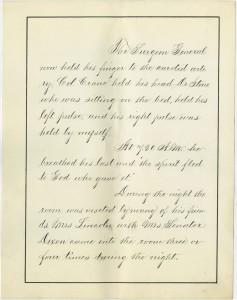 The Surgeon General
now held his finger to the carotid arte
ry, Col Crane held his head, Dr Stone
who was sitting on the bed, held his
left pulse, and his right pulse was
held by myself.
At 7.20 A.M. he
breathed his last and "the spirit fled
to God who gave it"
During the night the
room was visited by many of his frien
ds. Mrs Lincoln with Mrs Senator
Dixon came into the room three or
four times during the night.